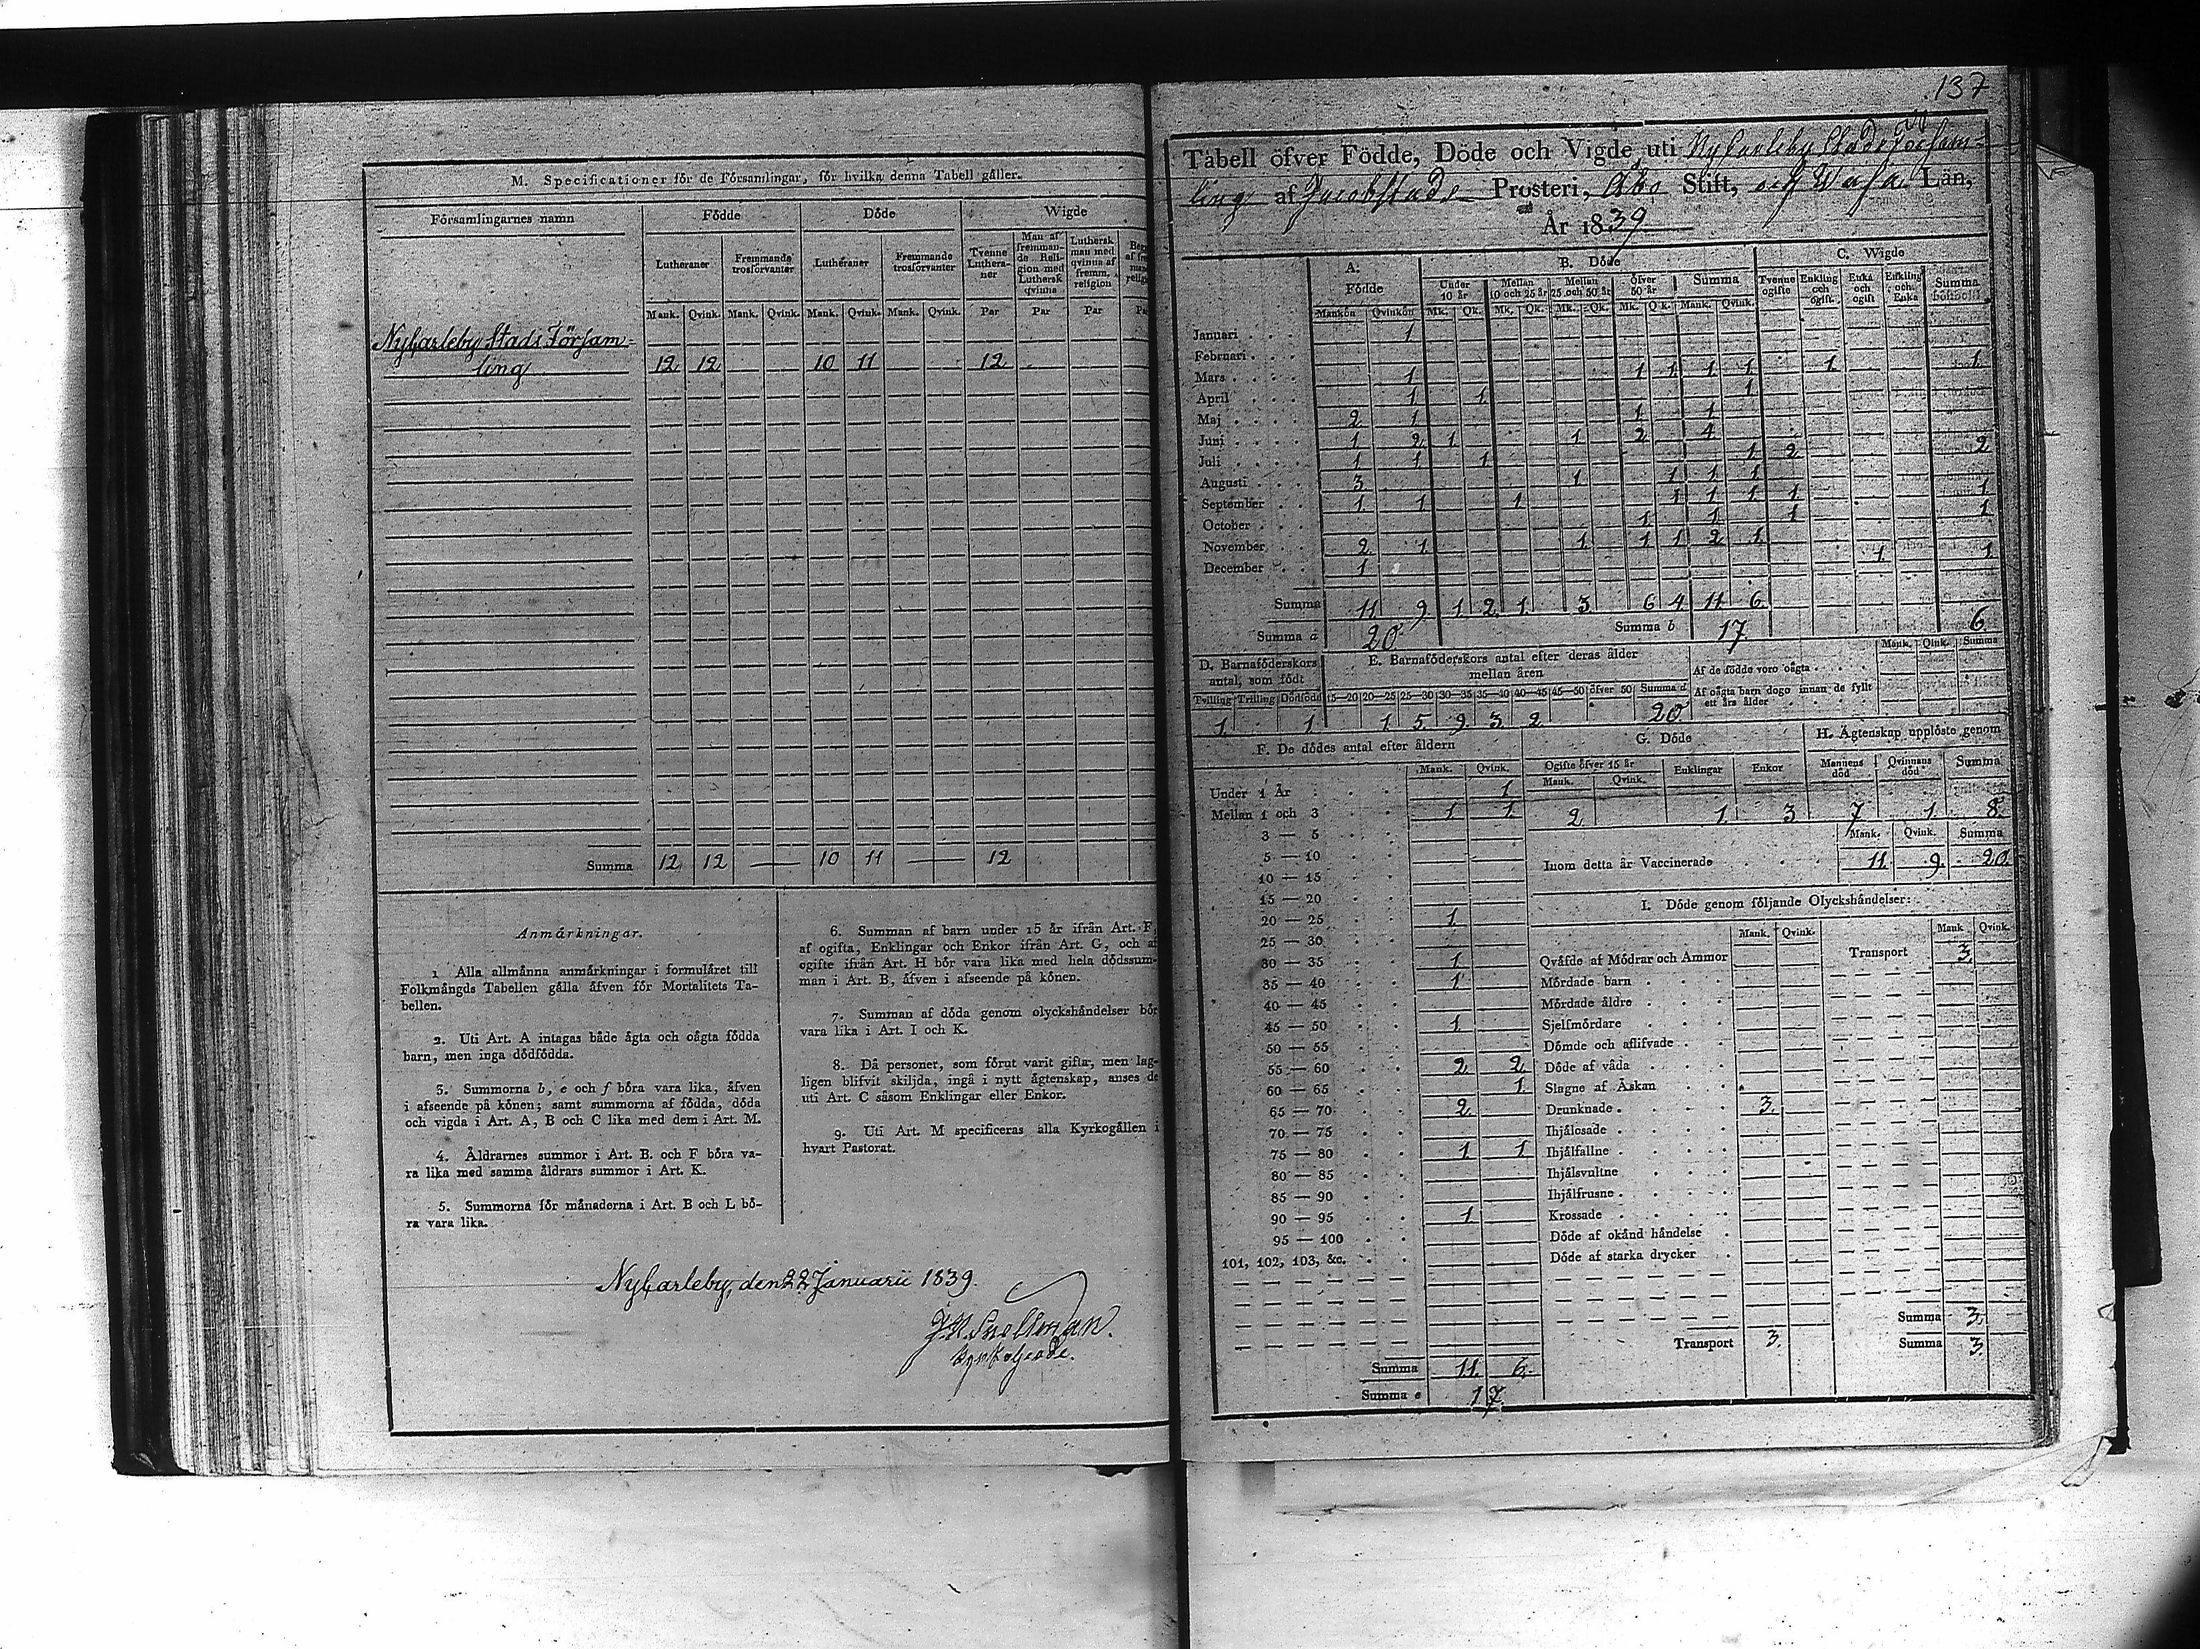 M. Specificationer för de Församlingar, för hvilka denna Tabell gäller.
Församlingarnes namn Födde Döde Wigde
Lutheraner Fremmande trosförvanter Lutheraner Fremmande trosförvanter Tvenne Lutheraner Man af fremmande Religion med Luthersk qvinna Luthersk man med qvinna af fremm. religion
Mank. Qvink. Mank. Qvink. Mank. Qvink. Mank. Qvink. Par Par Par
Nykarleby Stads Församling 12 12 10 11 12
Summa 12 12 — 10 11 — 12
Anmärkningar.
1 Alla allmänna anmärkningar i formuläret till
Folkmängds Tabellen gälla äfven för Mortalitets Ta-
bellen.
2. Uti Art. A intagas både ägta och oägta födda
barn, men inga dödfödda.
3. Summorna b, e och f böra vara lika, äfven
i afseende på könen; samt summorna af födda, döda
och vigda i Art. A, B och C lika med dem i Art. M.
4. Åldrarnes summor i Art. B. och F böra va-
ra lika med samma åldrars summor i Art. K.
5. Summorna för månaderna i Art. B och L bö-
ra vara lika.
6. Summan af barn under 15 år ifrån Art. F,
af ogifta, Enklingar och Enkor ifrån Art. G, och af
ogifte ifrån Art. H bör vara lika med hela dödssum-
man i Art. B, äfven i afseende på könen.
7. Summan af döda genom olyckshändelser bör
vara lika i Art. I och K.
8. Då personer, som förut varit gifta, men lag-
ligen blifvit skiljda, ingå i nytt ägtenskap, anses de
uti Art. C såsom Enklingar eller Enkor.
9. Uti Art. M specificeras alla Kyrkogällen i
hvart Pastorat.
Nykarleby, den 22 Januarii 1839.
J. W. Snellman.
Kyrkoherde.
137
Tabell öfver Födde, Döde och Vigde uti Nykarleby Stads Församling
af Jacobstads Prosteri, Åbo Stift, och Wasa Län,
År 1839
A. Födde B. Döde C. Wigde
Under 10 år Mellan 10 och 25 år Mellan 25 och 50 år öfver 50 år Summa Tvenne ogifte Enkling och ogift Enka och ogift Enkling och Enka Summa
Mankön Qvinkön Mk. Qk. Mk. Qk. Mk. Qk. Mk. Qk. Mank. Qvink.
Januari 1
Februari
Mars 1 1 1 1 1 1 1
April 1 1 1
Maj 2 1 1 1
Juni 1 2 1 1 2 4
Juli 1 1 1 1 2 2
Augusti 3 1 1 1 1
September 1 1 1 1 1 1 1 1
October 1 1 1 1
November 2 1 1 1 1 2 1
December 1 1 1
Summa 11 9 1 2 1 3 6 4 11 6
Summa a 20 Summa b 17 6
D. Barnaföderskors antal, som födt
Tvilling Trilling Dödfödd
1 1
E. Barnaföderskors antal efter deras ålder mellan åren
15—20 20—25 25—30 30—35 35—40 40—45 45—50 öfver 50 Summa d
1 5 9 3 2 20
Mank. Qink. Summa
Af de födde voro oägta
Af oägta barn dogo innan de fyllt
ett års ålder
F. De dödes antal efter åldern
Mank. Qvink.
Under 1 År 1
Mellan 1 och 3 1 1
3 — 5
5 — 10
10 — 15
15 — 20
20 — 25 1
25 — 30
30 — 35 1
35 — 40 1
40 — 45
45 — 50 1
50 — 55
55 — 60 2 2
60 — 65 1
65 — 70 2
70 — 75
75 — 80 1 1
80 — 85
85 — 90
90 — 95 1
95 — 100
101, 102, 103, &c.
Summa 11 6
Summa e 17
G. Döde
Ogifte öfver 15 år Enklingar Enkor
Mank. Qvink.
2 1 3
H. Ägtenskap upplöste genom
Mannens död Qvinnans död Summa
7 1 8
Mank. Qvink. Summa
Inom detta år Vaccinerade 11 9 20
I. Döde genom följande Olyckshändelser:
Mank. Qvink. Mank. Qvink.
Qväfde af Mödrar och Ammor Transport 3
Mördade barn
Mördade äldre
Sjelfmördare
Dömde och aflifvade
Döde af våda
Slagne af Åskan
Drunknade 3
Ihjälosade
Ihjälfallne
Ihjälsvultne
Ihjälfrusne
Krossade
Döde af okänd händelse
Döde af starka drycker
Summa 3
Transport 3 Summa 3